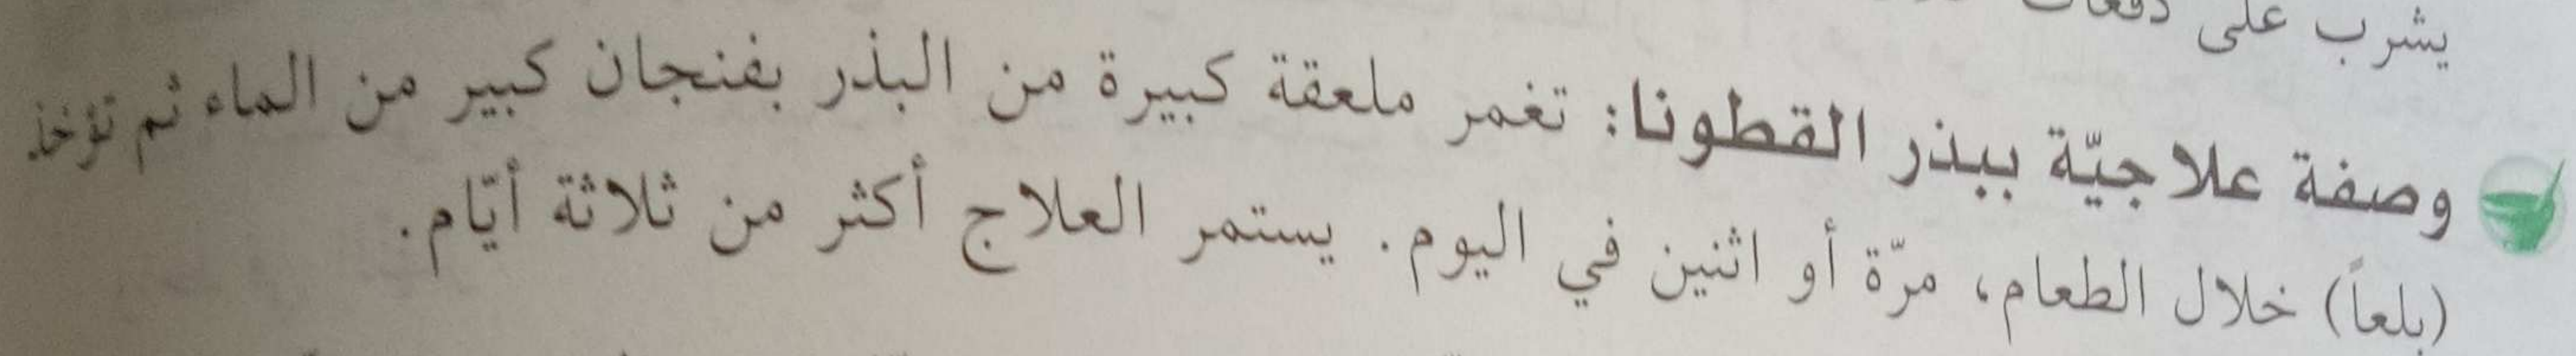 يشرب على دفعات
وصفة علاجيّة ببذر القطونا: تغمر ملعقة كبيرة من البذر بفنجان كبير من الماء ثم تؤخذ
(بلعاً) خلال الطعام، مرّة أو اثنين في اليوم. يستمر العلاج أكثر من ثلاثة أيّام.